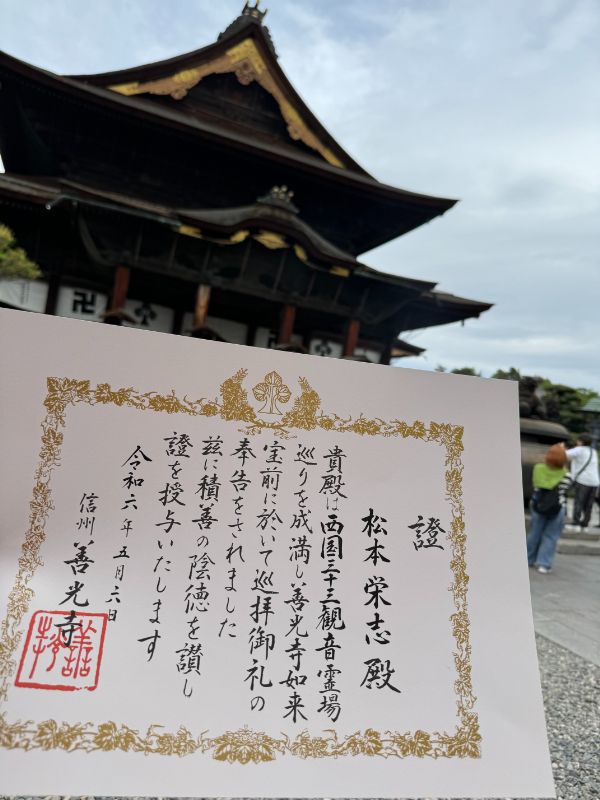 證
松本栄志殿
貴殿は西国三十三観音霊場
巡りを成満し善光寺如来
宝前に於いて巡拝御礼の
奉告をされました
茲に積善の陰徳を讃し
證を授与いたします
令和六年五月六日
信州 善光寺